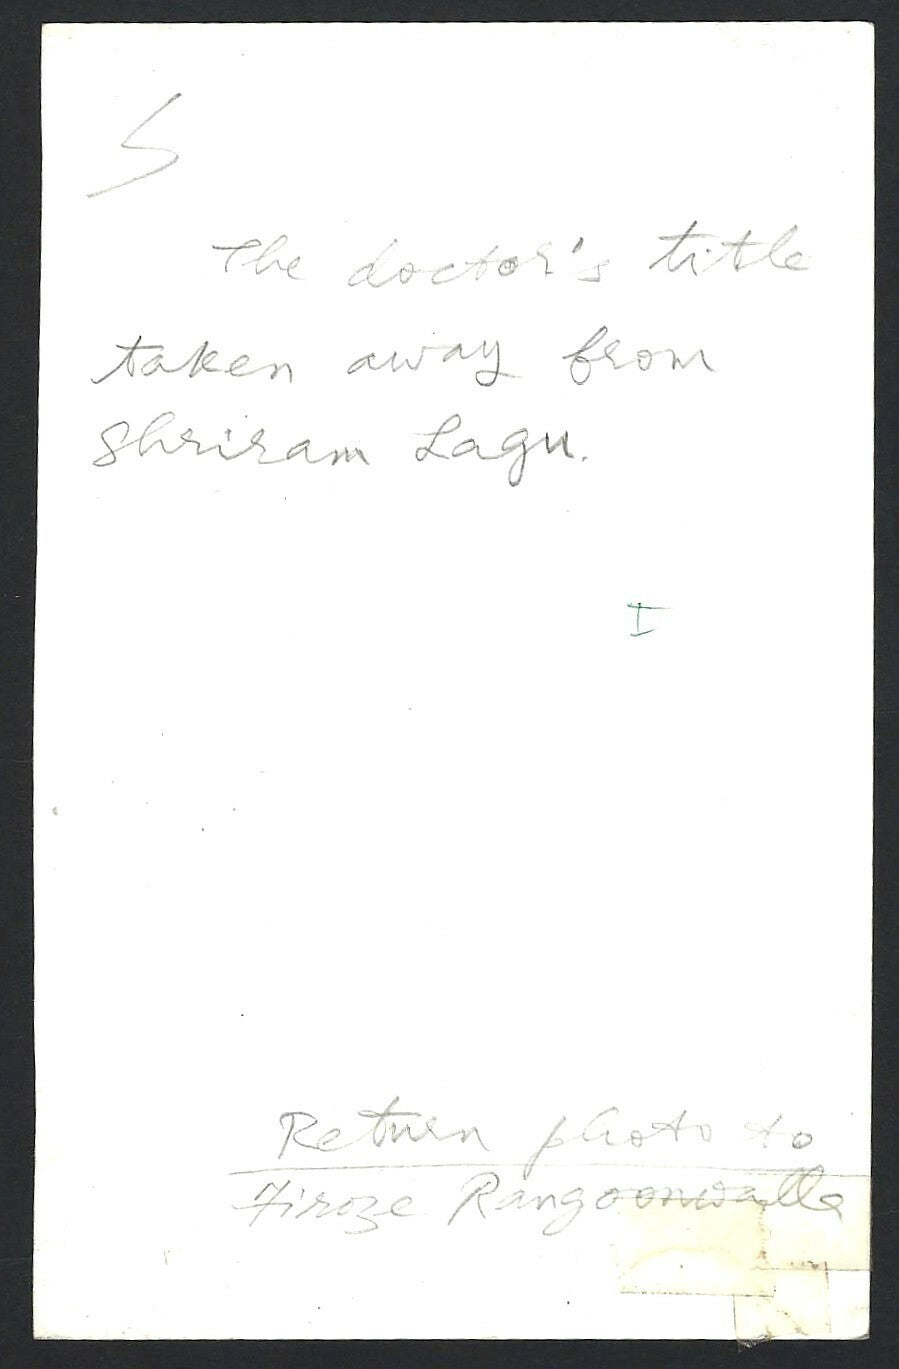 S
The doctor's title
taken away from
Shriram Lagu.
I
Return photo to
Firoze Rangoonwalla